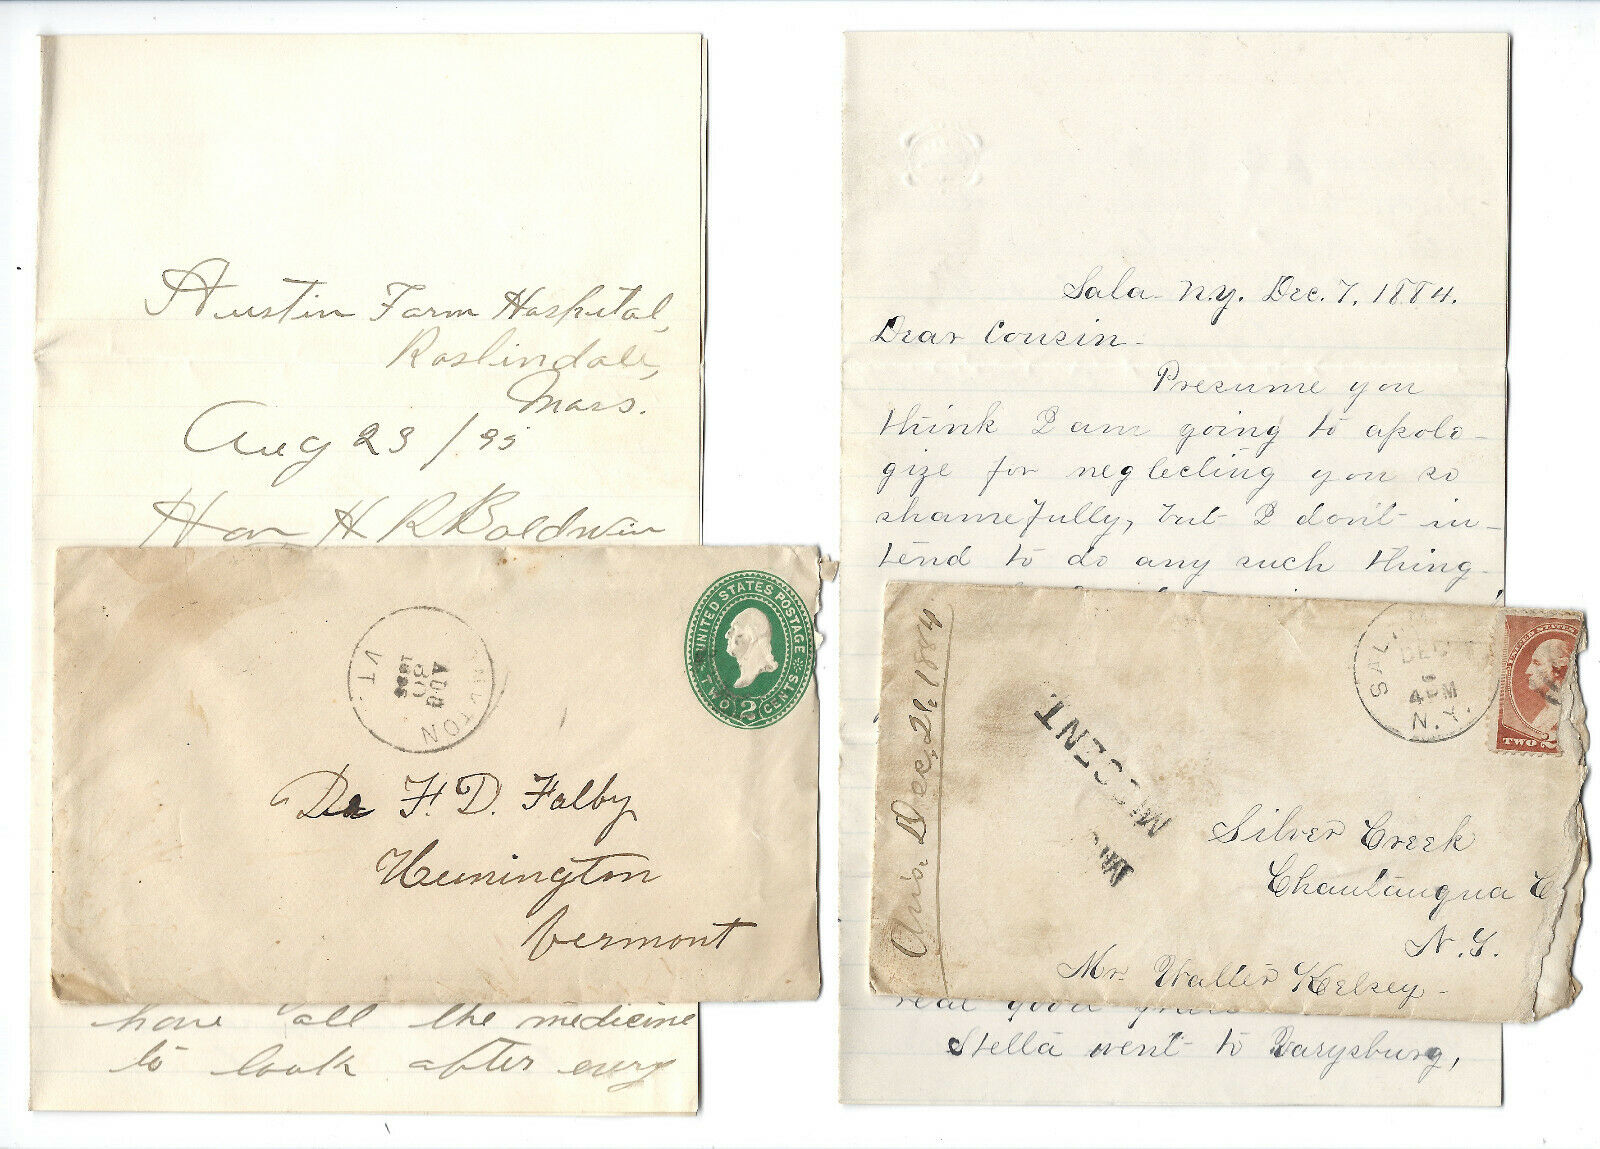 Austin Farm Hospital,
Roslindale,
Mass.
Aug 23 / 95
Hon H R Baldwin
UNITED STATES POSTAGE
TWO 2 CENTS
VT.
AUG
30
1895
Dr F. D. Falby
Wennington
Vermont
have all the medicine
to look after every
Sala. N.Y. Dec. 7, 1884.
Dear Cousin-
Presume you
think I am going to apolo-
gize for neglecting you so
shamefully, but I don't in-
tend to do any such thing.
Ans. Dec. 21, 1884
SAL
DEC
4PM
N.Y.
TWO 2
MISSENT
Silver Creek
Chautauqua C
N.Y.
Mr. Walter Kelsey-
real good
Stella went to Varysburg,